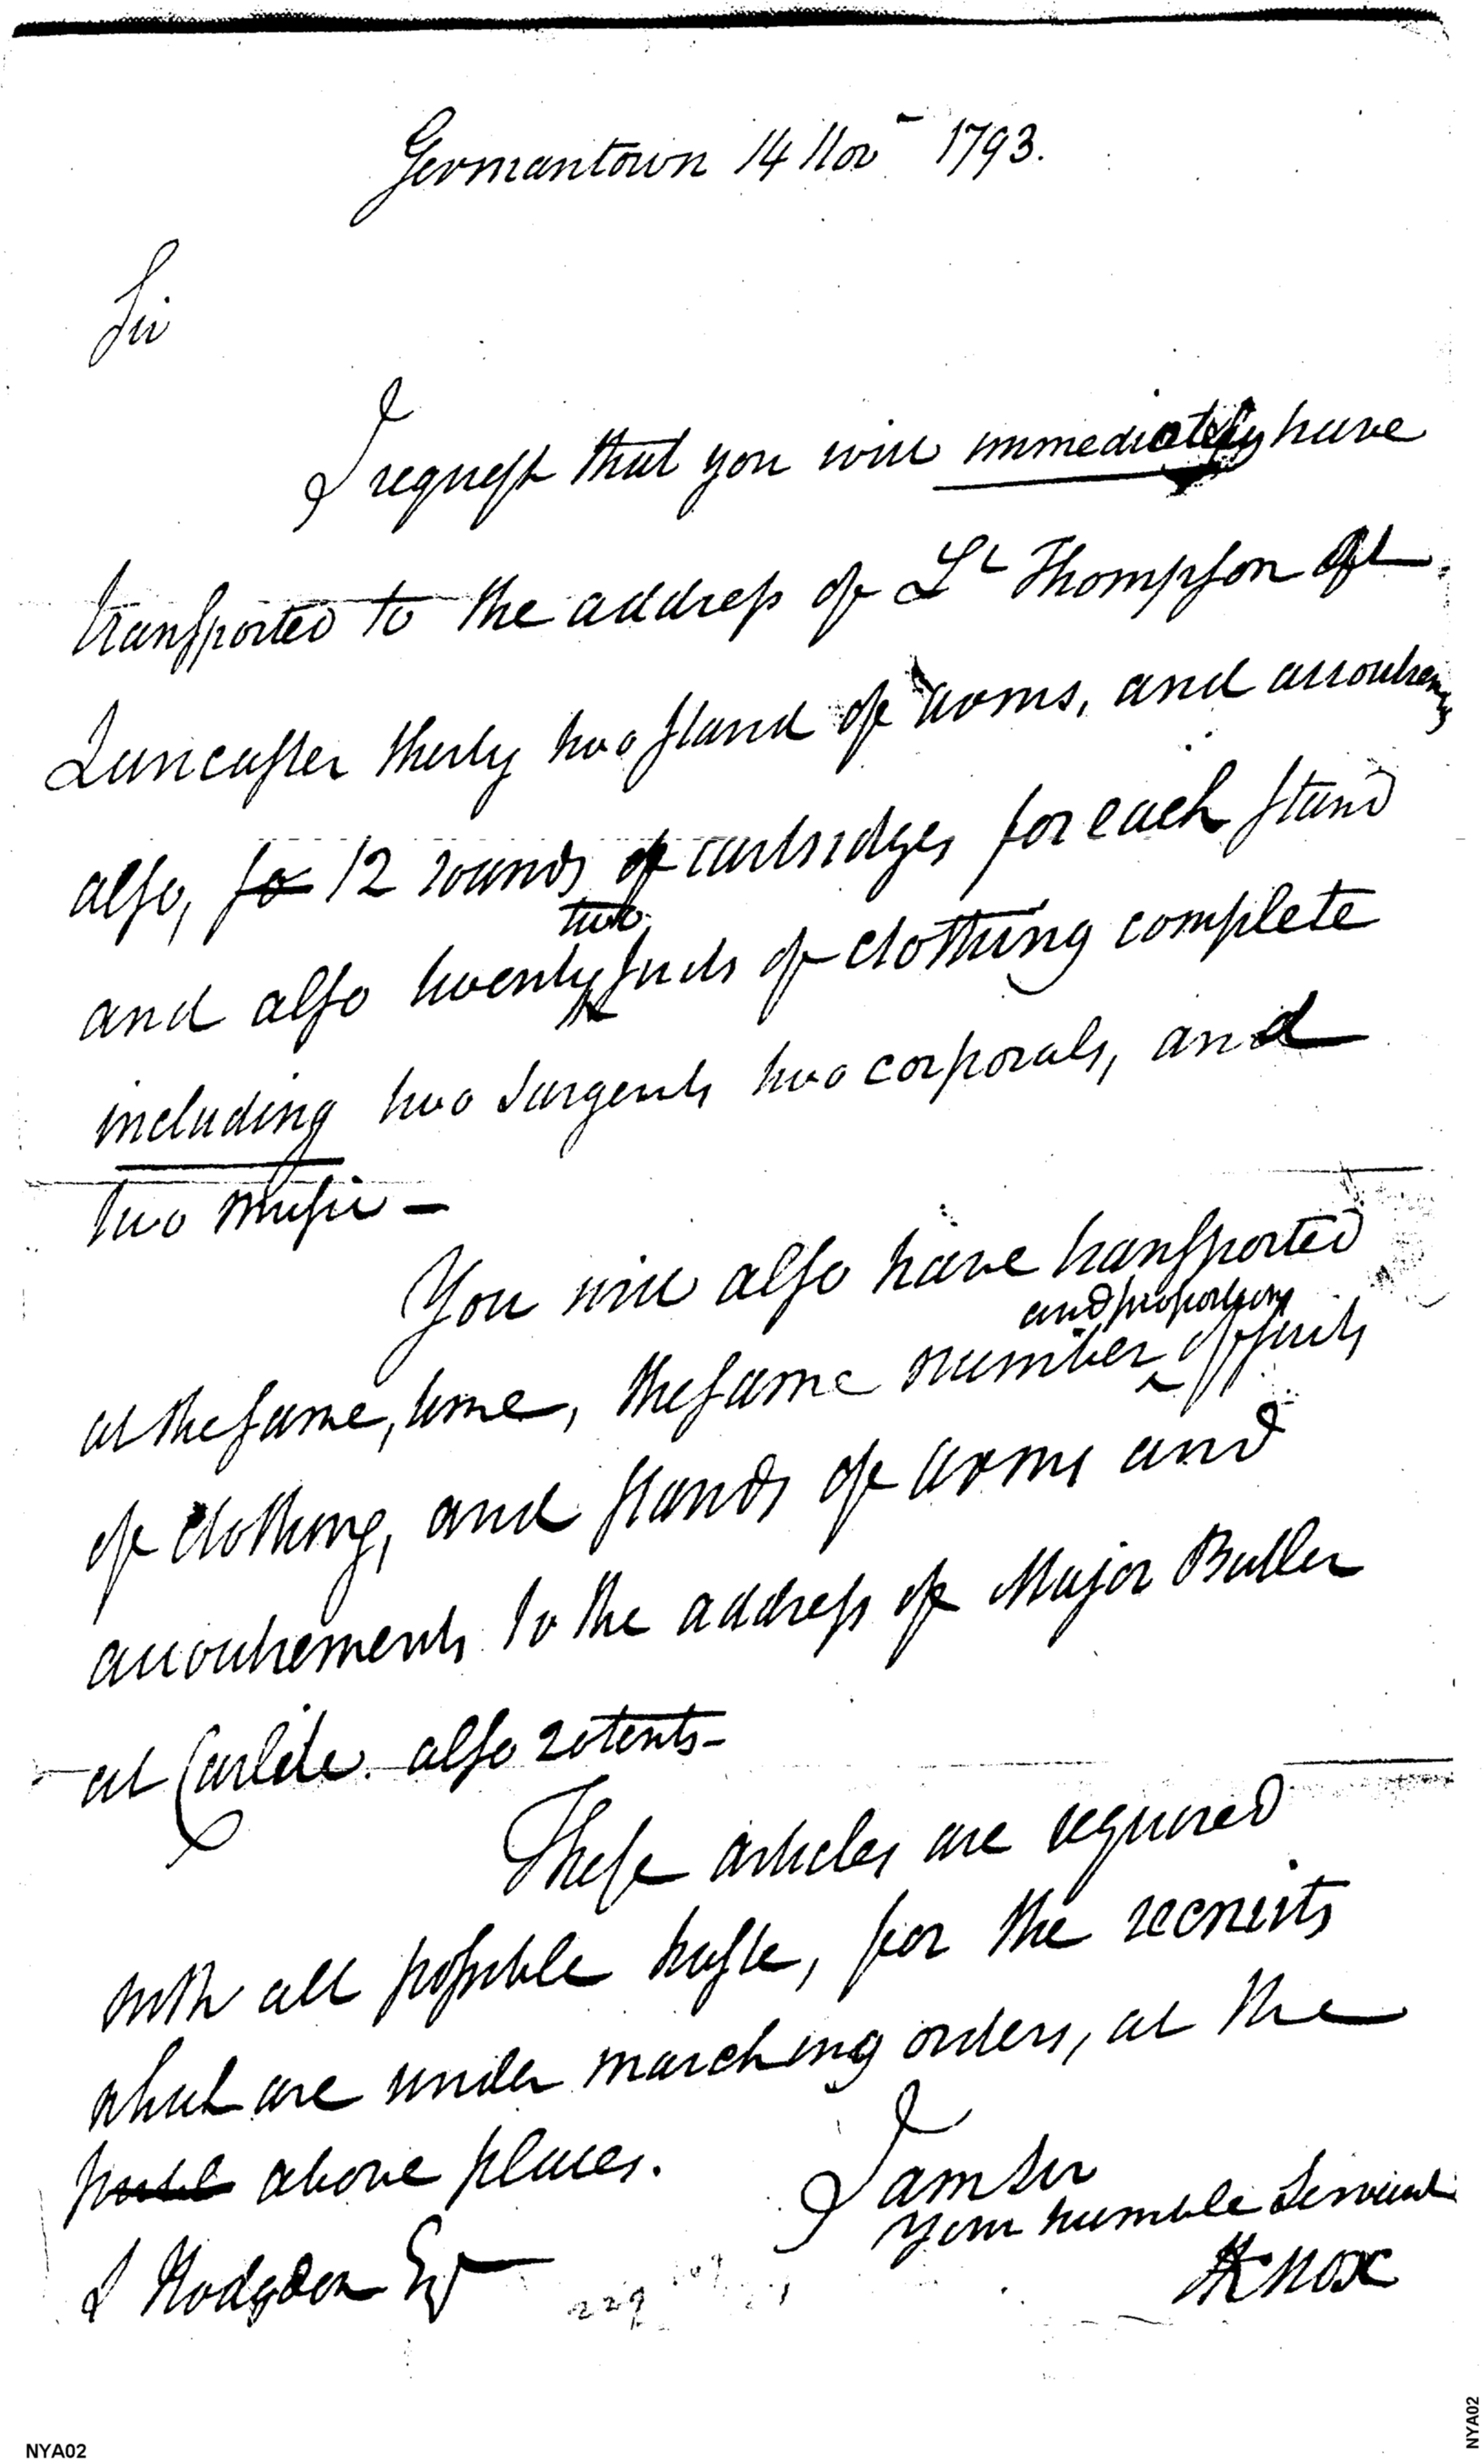 Germantown 14 Nov 1793.
Sir
I request that you will immediately have
transported to the address of Lt Thompson at
Lancaster thirty two stand of arms, and accoutrements
also, fo 12 rounds of cartridges for each stand
two
and also twenty suits of clothing complete
including two Sargents two corporals, and
two music —
You will also have transported
and proportions
at the same, time, the same number of suits
of clothing, and stands of arms and
accoutrements to the address of Major Butler
at Carlile. also 20 tents —
These articles are required
with all possible haste, for the recruits
which are under marching orders, at the
above places.
I am Sir
Your humble Servant
HKnox
S Hodgdon Esqr
229
NYA02
NYA02